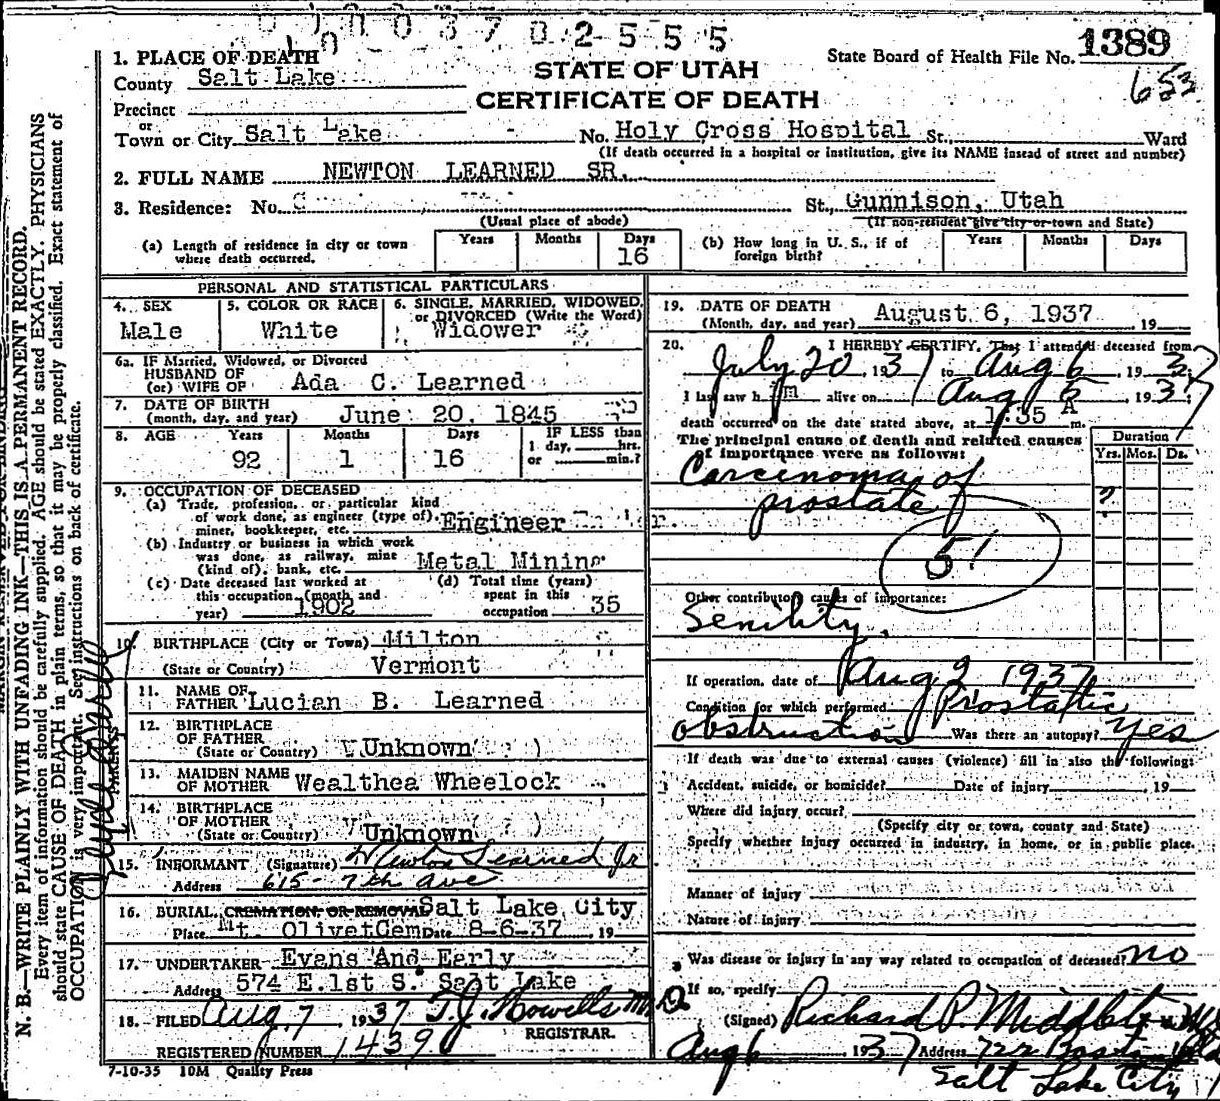 0000 3 7 0 2 5 5 5
1. PLACE OF DEATH
County Salt Lake
STATE OF UTAH
CERTIFICATE OF DEATH
State Board of Health File No. 1389
653
Precinct
or
Town or City Salt Lake No. Holy Cross Hospital St., Ward
(If death occurred in a hospital or institution, give its NAME instead of street and number)
2. FULL NAME NEWTON LEARNED SR.
3. Residence: No. St., Gunnison, Utah
(Usual place of abode) (If non-resident give city or town and State)
(a) Length of residence in city or town where death occurred. Years Months Days 16
(b) How long in U. S., if of foreign birth? Years Months Days
PERSONAL AND STATISTICAL PARTICULARS
4. SEX Male
5. COLOR OR RACE White
6. SINGLE, MARRIED, WIDOWED, or DIVORCED (Write the Word) Widower
6a. IF Married, Widowed, or Divorced
HUSBAND OF
(or) WIFE OF Ada C. Learned
7. DATE OF BIRTH
(month, day, and year) June 20, 1845
8. AGE Years 92 Months 1 Days 16 IF LESS than 1 day, hrs. or min.?
9. OCCUPATION OF DECEASED
(a) Trade, profession, or particular kind
of work done, as engineer (type of),
miner, bookkeeper, etc. Engineer
(b) Industry or business in which work
was done, as railway, mine
(kind of), bank, etc. Metal Mining
(c) Date deceased last worked at
this occupation (month and
year) 1902
(d) Total time (years)
spent in this
occupation 35
10. BIRTHPLACE (City or Town) Milton
(State or Country) Vermont
11. NAME OF
FATHER Lucian B. Learned
12. BIRTHPLACE
OF FATHER
(State or Country) Unknown
13. MAIDEN NAME
OF MOTHER Wealthea Wheelock
14. BIRTHPLACE
OF MOTHER
(State or Country) Unknown
PARENTS
15. INFORMANT (Signature) Newton Learned Jr
Address 615-7th Ave
16. BURIAL, CREMATION, OR REMOVAL Salt Lake City
Place Mt. Olivet Cem Date 8-6-37, 19
17. UNDERTAKER Evans And Early
Address 574 E.1st S. Salt Lake
18. FILED Aug. 7 1937 T.J. Howells M.D.
REGISTRAR.
REGISTERED NUMBER 1439
7-10-35 10M Quality Press
19. DATE OF DEATH
(Month, day, and year) August 6, 1937, 19
20. I HEREBY CERTIFY, That I attended deceased from
July 20, 1937 to Aug 6, 1937
I last saw him alive on Aug 5, 1937;
death occurred on the date stated above, at 1:35 A m.
The principal cause of death and related causes
of importance were as follows:
Duration
Yrs. Mos. Ds.
Carcinoma of
prostate ?
51
Other contributory causes of importance:
Senility.
If operation, date of Aug 2 1937
Condition for which performed Prostatic
obstruction Was there an autopsy? Yes
If death was due to external causes (violence) fill in also the following:
Accident, suicide, or homicide? Date of injury , 19
Where did injury occur?
(Specify city or town, county and State)
Specify whether injury occurred in industry, in home, or in public place.
Manner of injury
Nature of injury
Was disease or injury in any way related to occupation of deceased? no
If so, specify
(Signed) Richard P. Middleton M.D.
Aug 6 1937 Address 722 Boston Bldg
Salt Lake City
N. B.—WRITE PLAINLY WITH UNFADING INK—THIS IS A PERMANENT RECORD.
Every item of information should be carefully supplied. AGE should be stated EXACTLY. PHYSICIANS
should state CAUSE OF DEATH in plain terms, so that it may be properly classified. Exact statement of
OCCUPATION is very important. See instructions on back of certificate.